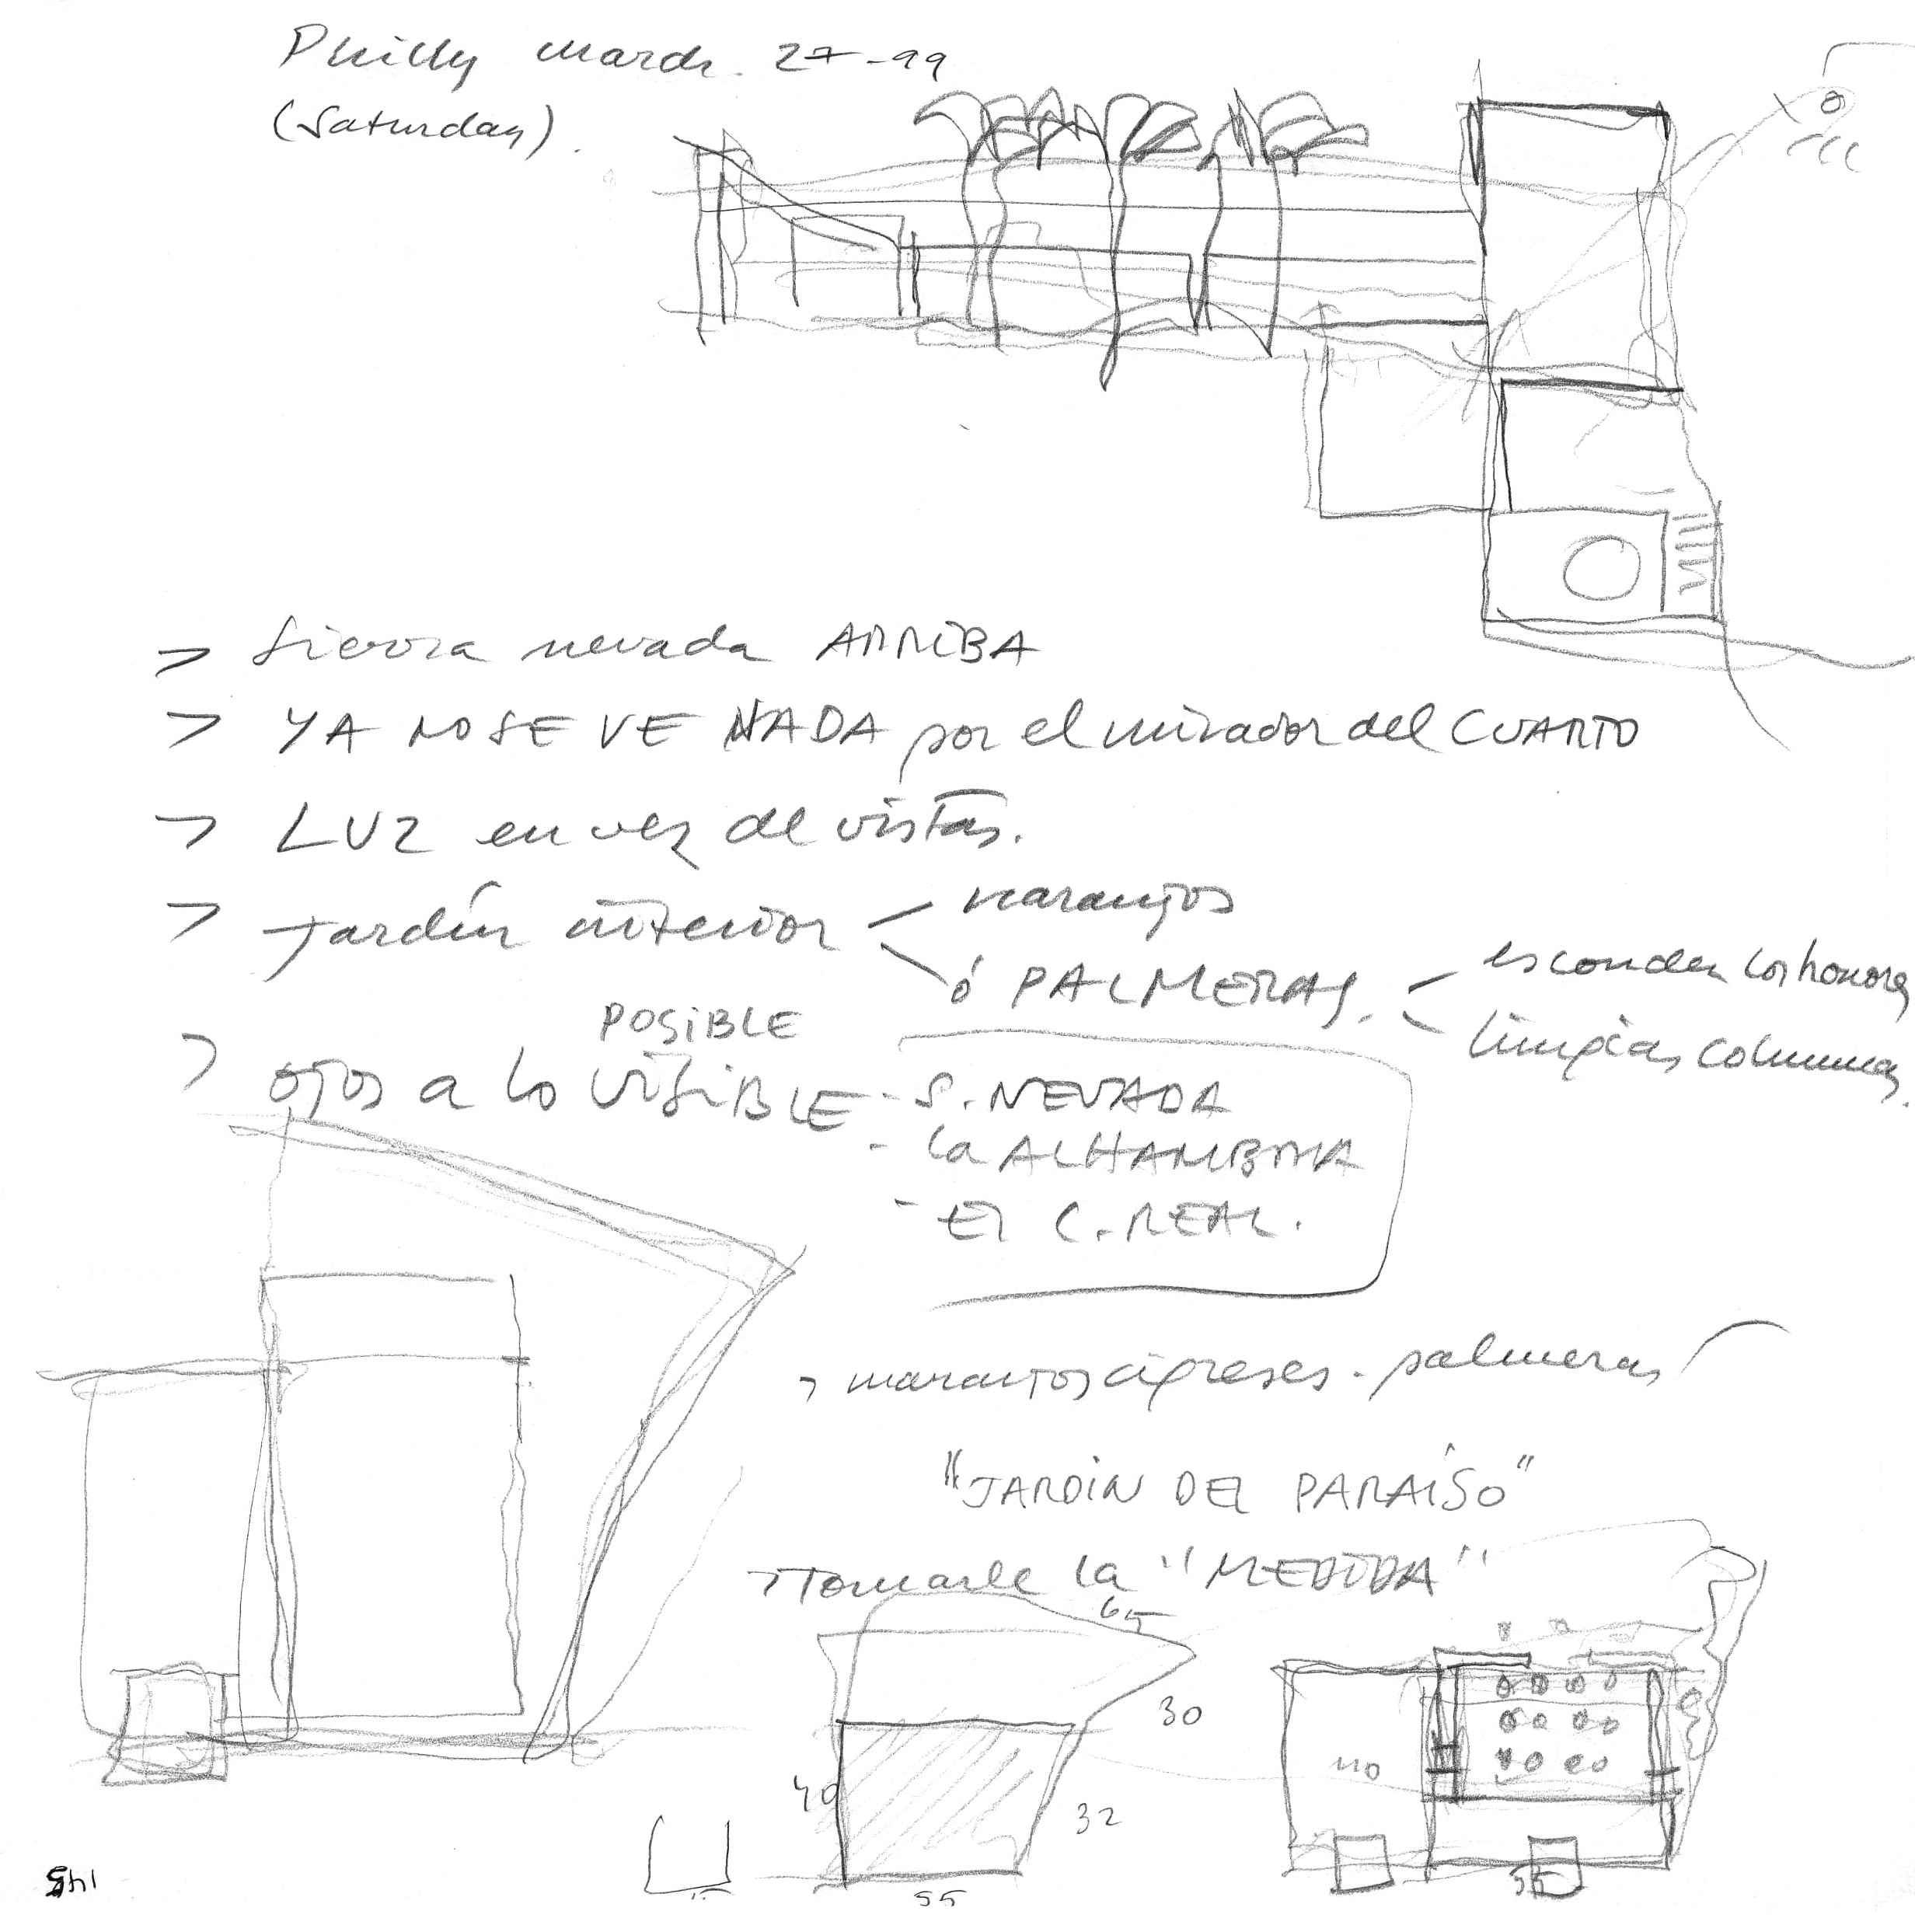 Philly march 27-99
(Saturday).
> Sierra nevada ARRIBA
> YA NO SE VE NADA por el mirador del CUARTO
> LUZ en vez de vistas.
> Jardín interior
naranjos
ó PALMERAS.
esconden los
limpias columnas.
POSIBLE
> ojos a lo VISIBLE
- S. NEVADA
- la ALHAMBRA
- El C. REAL.
> naranjos cipreses - palmeras
"JARDIN DEL PARAÍSO"
> Tomarle la "MEDIDA"
65
30
40
32
55
110
55
145